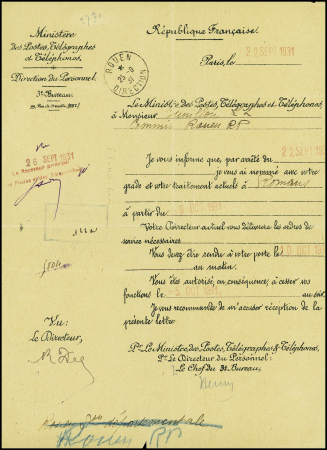 République Française.
Ministère
des Postes, Télégraphes
et Téléphones.
Direction du Personnel.
3e Bureau.
Paris, le 22 SEPT 1931
ROUEN
DIRECTION
Le Ministre des Postes, Télégraphes et Téléphones,
à Monsieur
Commis Rouen RP
Je vous informe que, par arrêté du 22 SEPT 1931
je vous ai nommé avec votre
grade et votre traitement actuels à Romans
à partir du
Votre Directeur actuel vous délivrera les ordres de
service nécessaires.
Vous devez être rendu à votre poste le
au matin.
Vous êtes autorisé, en conséquence, à cesser vos
fonctions le OCT 1931 au soir.
Je vous recommande de m'accuser réception de la
présente lettre
26 SEPT 1931
Le Receveur principal
Vu:
Le Directeur,
Pr Le Ministre des Postes, Télégraphes & Téléphones,
Pr Le Directeur du Personnel:
Le Chef du 3e Bureau,
Rouen RP